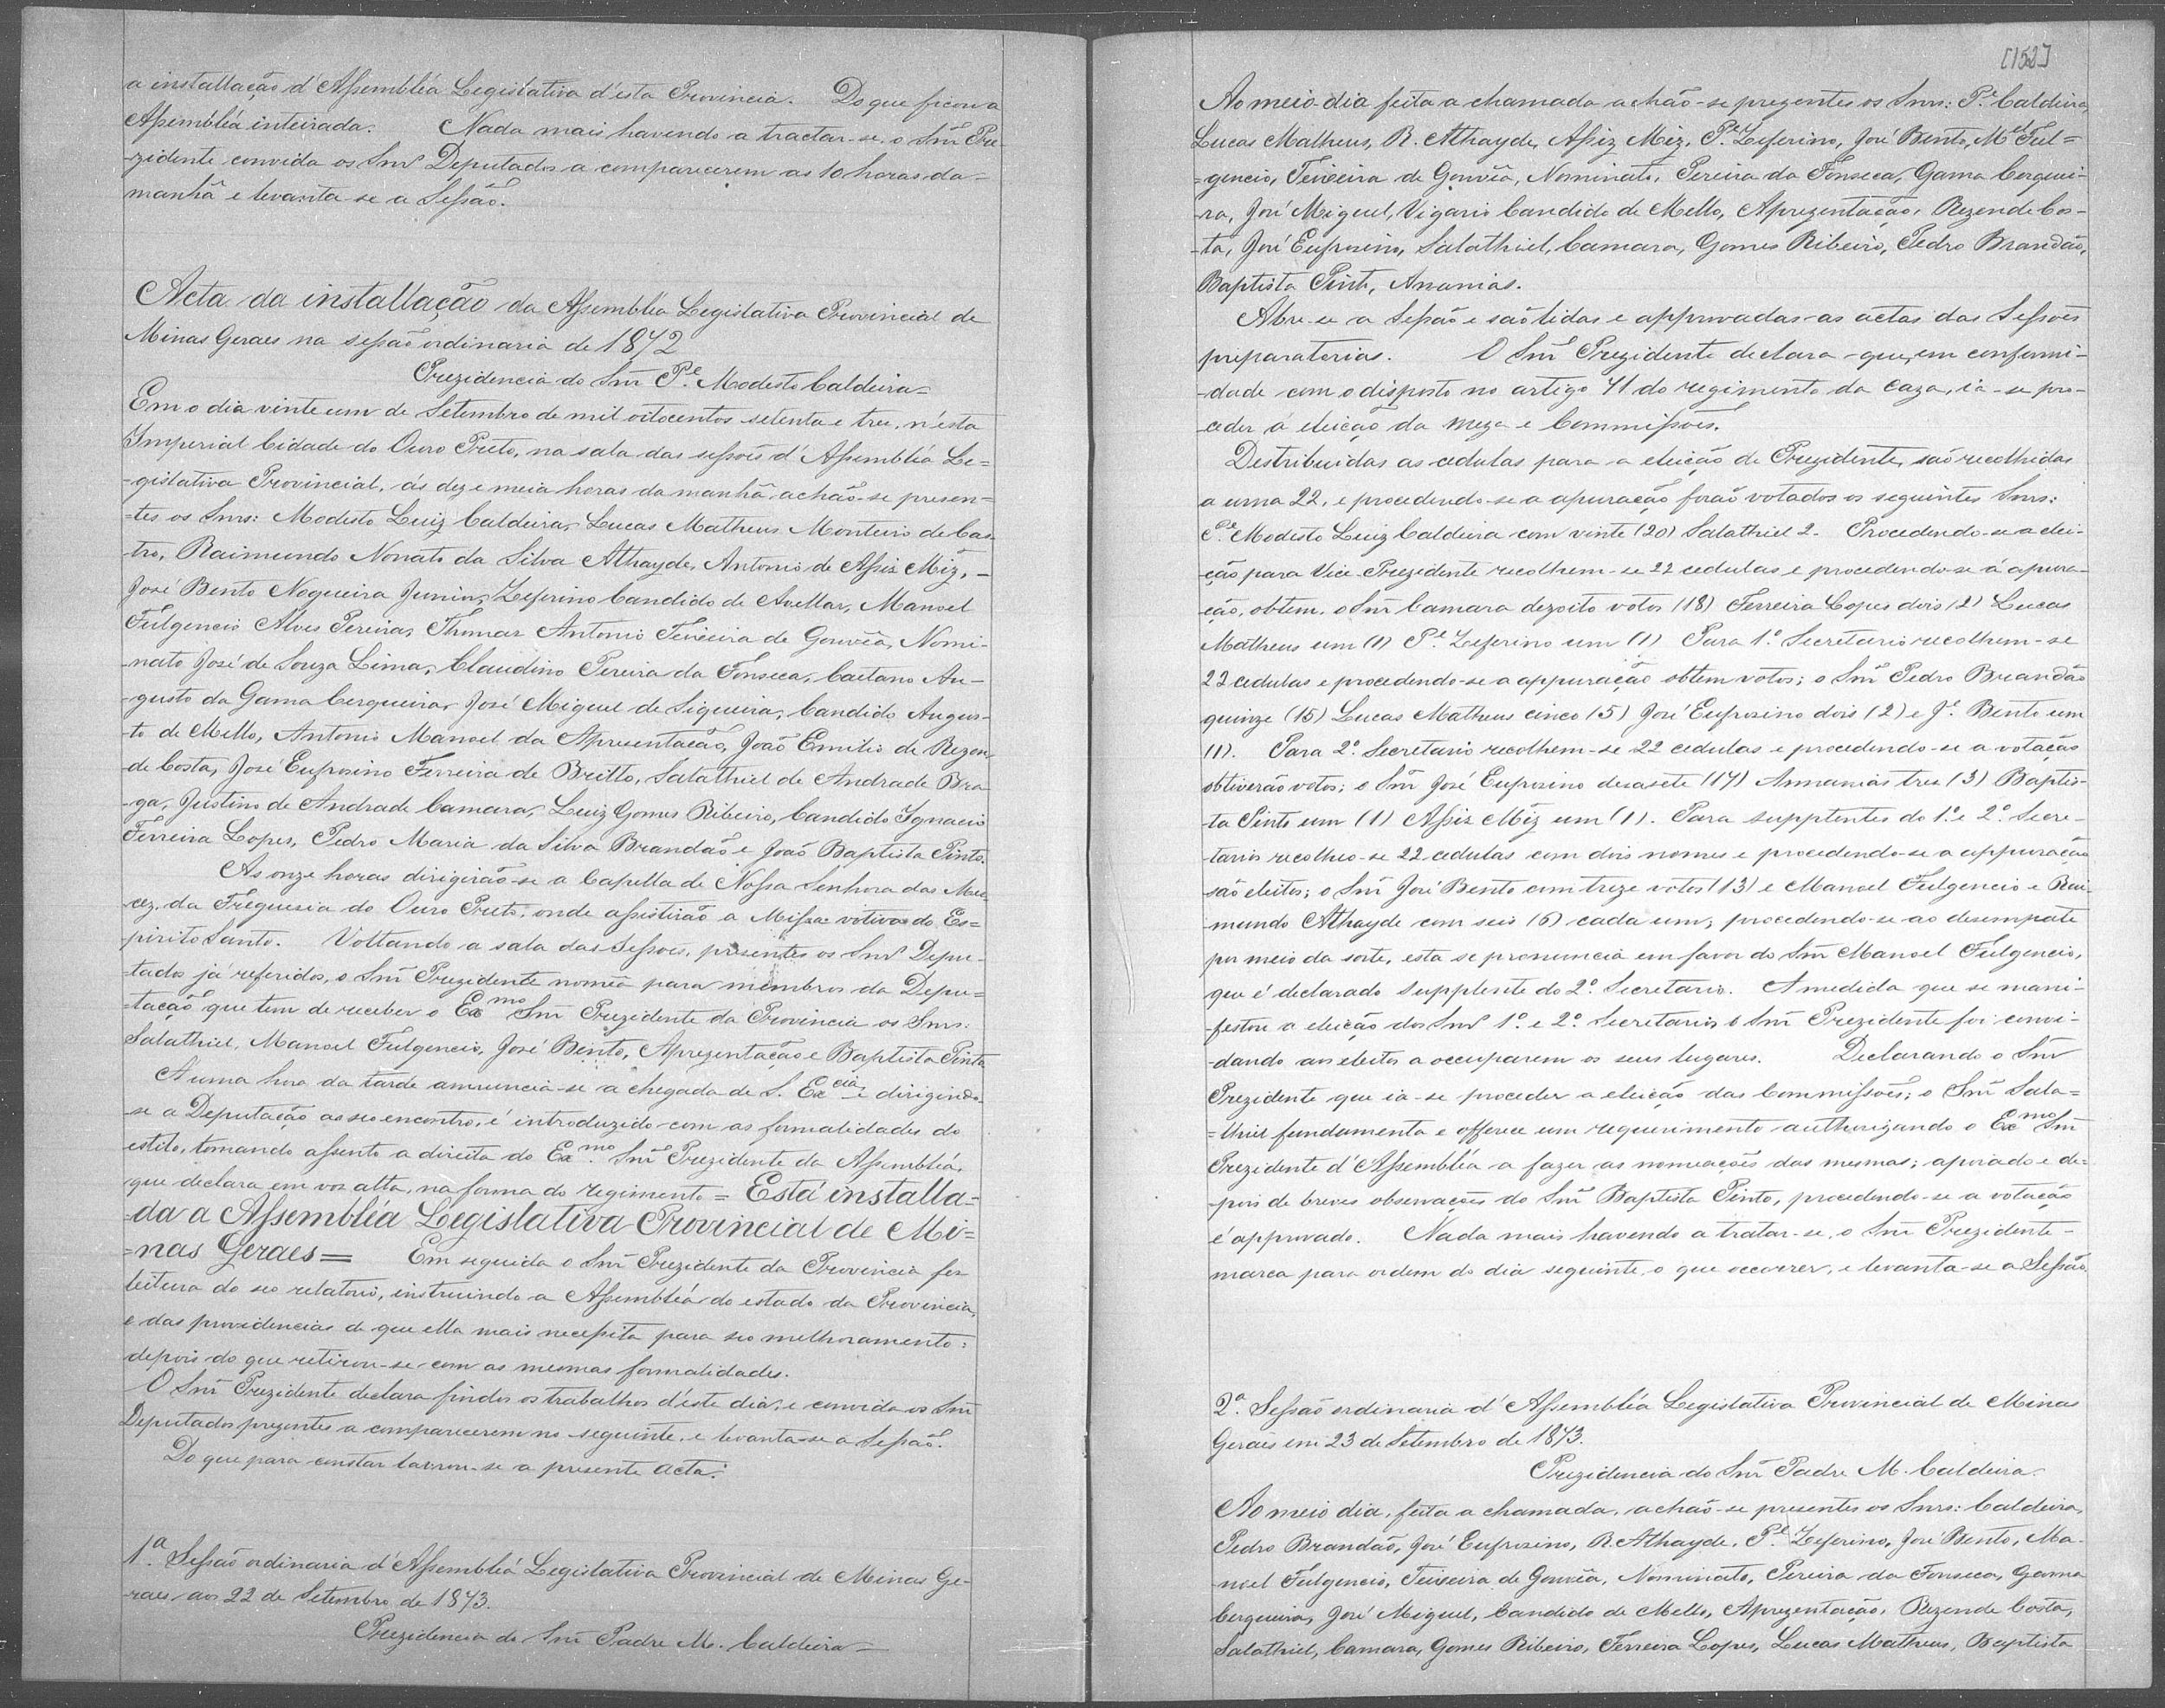 a installação d'Assembléa Legislativa d'esta Provincia. Do que ficou a
Assembléa inteirada. Nada mais havendo a tractar-se, o Snr Pre-
-zidente convida os Snrs Deputados a comparecerem as 10 horas da
manhã e levanta-se a Sessão.
Acta da installação da Assembléa Legislativa Provincial de
Minas Geraes na sessão ordinaria de 1872
Prezidencia do Snr Pe. Modesto Caldeira=
Em o dia vinte um de Setembro de mil oitocentos setenta e tres, n'esta
Imperial Cidade do Ouro Preto, na sala das sessões d'Assembléa Le=
-gislativa Provincial, ás dez e meia horas da manhã, achão-se presen=
=tes os Snrs: Modesto Luiz Caldeira, Lucas Matheus Monteiro de Cas-
tro, Raimundo Nonato da Silva Athayde, Antonio de Assiz Miz, -
José Bento Nogueira Junior, Zeferino Candido de Avellar, Manoel
Fulgencio Alves Pereira, Thomaz Antonio Teixeira de Gouvêa, Nomi-
-nato José de Souza Lima, Claudino Pereira da Fonseca, Caetano Au-
-gusto da Gama Cerqueira, José Miguel de Siqueira, Candido Augus-
-to de Mello, Antonio Manoel da Apresentação, João Emilio de Rezen-
-de Costa, José Eufrosino Ferreira de Britto, Salathiel de Andrade Bra-
-ga, Justino de Andrade Camara, Luiz Gomes Ribeiro, Candido Ignacio
Ferreira Lopes, Pedro Maria da Silva Brandão e João Baptista Pinto.
As onze horas dirigirão-se a Capella de Nossa Senhora das Mer-
cez, da Freguesia do Ouro Preto, onde assistirão a Missa votiva do Es=
pirito Santo. Voltando a sala das Sessões, presentes os Snrs Depu-
-tados já referidos, o Snr Prezidente nomêa para membros da Depu=
=tação que tem de receber o Exmo Snr Prezidente da Provincia os Snrs:
Salathiel, Manoel Fulgencio, José Bento, Aprezentação e Baptista Pinto
A uma hora da tarde annuncia-se a chegada de S. Excia e dirigindo-
-se a Deputação ao seo encontro, é introduzido com as formalidades do
estilo, tomando assento a direita do Exmo. Snr Prezidente da Assembléa,
que declara em voz alta, na forma do regimento = Está installa-
-da a Assembléa Legislativa Provincial de Mi-
=nas Geraes= Em seguida o Snr Prezidente da Provincia fez
leitura do seo relatorio, instruindo a Assembléa do estado da Provincia,
e das providencias de que ella mais necessita para seo melhoramento:
depois do que retirou-se com as mesmas formalidades.
O Snr Prezidente declara findos os trabalhos d'este dia, e convida os Snrs
Deputados prezentes a comparecerem no seguinte, e levanta-se a Sessão.
Do que para constar lavrou-se a presente acta.
1a. Sessão ordinaria d'Assembléa Legislativa Provincial de Minas Ge-
-raes aos 22 de Setembro de 1873.
Prezidencia do Snr Padre M. Caldeira=
[152]
Ao meio dia feita a chamada achão-se prezentes os Snrs: Pe. Caldeira,
Lucas Matheus, R. Athayde, Assiz Miz, Pe. Zeferino, José Bento, Mel Ful=
=gencio, Teixeira de Gouvêa, Nominato, Pereira da Fonseca, Gama Cerquei-
-ra, José Miguel, Vigario Candido de Mello, Aprezentação, Rezende Cos-
-ta, José Eufrosino, Salathiel, Camara, Gomes Ribeiro, Pedro Brandão,
Baptista Pinto, Ananias.
Abre-se a Sessão e são lidas e approvadas as actas das Sessões
preparatorias. O Snr Prezidente declara que, em conformi-
-dade com o disposto no artigo 71 do regimento da caza, ia-se pro-
-ceder á eleição da meza e Commissões.
Destribuidas as cedulas para a eleição de Prezidente, são recolhidas
a urna 22, e procedendo-se a apuração forão votados os seguintes Snrs:
Pe. Modesto Luiz Caldeira com vinte (20) Salathiel 2. Procedendo-se a elei-
-ção para Vice-Prezidente recolhem-se 22 cedulas e procedendo-se á apura-
-ção, obtem, o Snr Camara dezoito votos (18) Ferreira Lopes dois (2) Lucas
Matheus um (1) Pe. Zeferino um (1) Para 1o. Secretario recolhem-se
23 cedulas e procedendo-se a appuração obtem votos; o Snr Pedro Brandão
quinze (15) Lucas Matheus cinco (5) José Eufrosino dois (2) e Je. Bento um
(1). Para 2o. Secretario recolhem-se 22 cedulas e procedendo-se a votação
obtiverão votos; o Snr José Eufrosino desasete (17) Annanias tres (3) Baptis-
-ta Pinto um (1) Assiz Miz um (1). Para supplentes do 1o. e 2o. Secre-
-tarios recolheo-se 22 cedulas com dois nomes e procedendo-se a appuração
são eleitos; o Snr José Bento com treze votos (13) e Manoel Fulgencio e Rai-
-mundo Athayde com seis (6) cada um, procedendo-se ao desempate
por meio da sorte, esta se pronuncia em favor do Snr Manoel Fulgencio,
que é declarado supplente do 2o. Secretario. A medida que se mani-
-festou a eleição dos Snrs 1o. e 2o. Secretarios o Snr Prezidente foi convi-
-dando aos eleitos a occuparem os seus lugares. Declarando o Snr
Prezidente que ia-se proceder a eleição das Commissões; o Snr Sala=
=thiel fundamenta e offerece um requerimento authorizando o Exmo Snr
Prezidente d'Assembléa a fazer as nomeações das mesmas; apoiado e de-
-pois de breves observações do Snr Baptista Pinto, procedendo-se a votação
é approvado. Nada mais havendo a tratar-se, o Snr Prezidente-
marca para ordem do dia seguinte, o que occorrer, e levanta-se a Sessão.
2a. Sessão ordinaria d'Assembléa Legislativa Provincial de Minas
Geraes em 23 de Setembro de 1873.
Prezidencia do Snr Padre M. Caldeira.
Ao meio dia, feita a chamada, achão-se presentes os Snrs: Caldeira,
Pedro Brandão, José Eufrosino, R. Athayde, Pe. Zeferino, José Bento, Ma-
-noel Fulgencio, Teixeira de Gouvêa, Nominato, Pereira da Fonseca, Gama
Cerqueira, José Miguel, Candido de Mello, Aprezentação, Rezende Costa,
Salathiel, Camara, Gomes Ribeiro, Ferreira Lopes, Lucas Matheus, Baptista